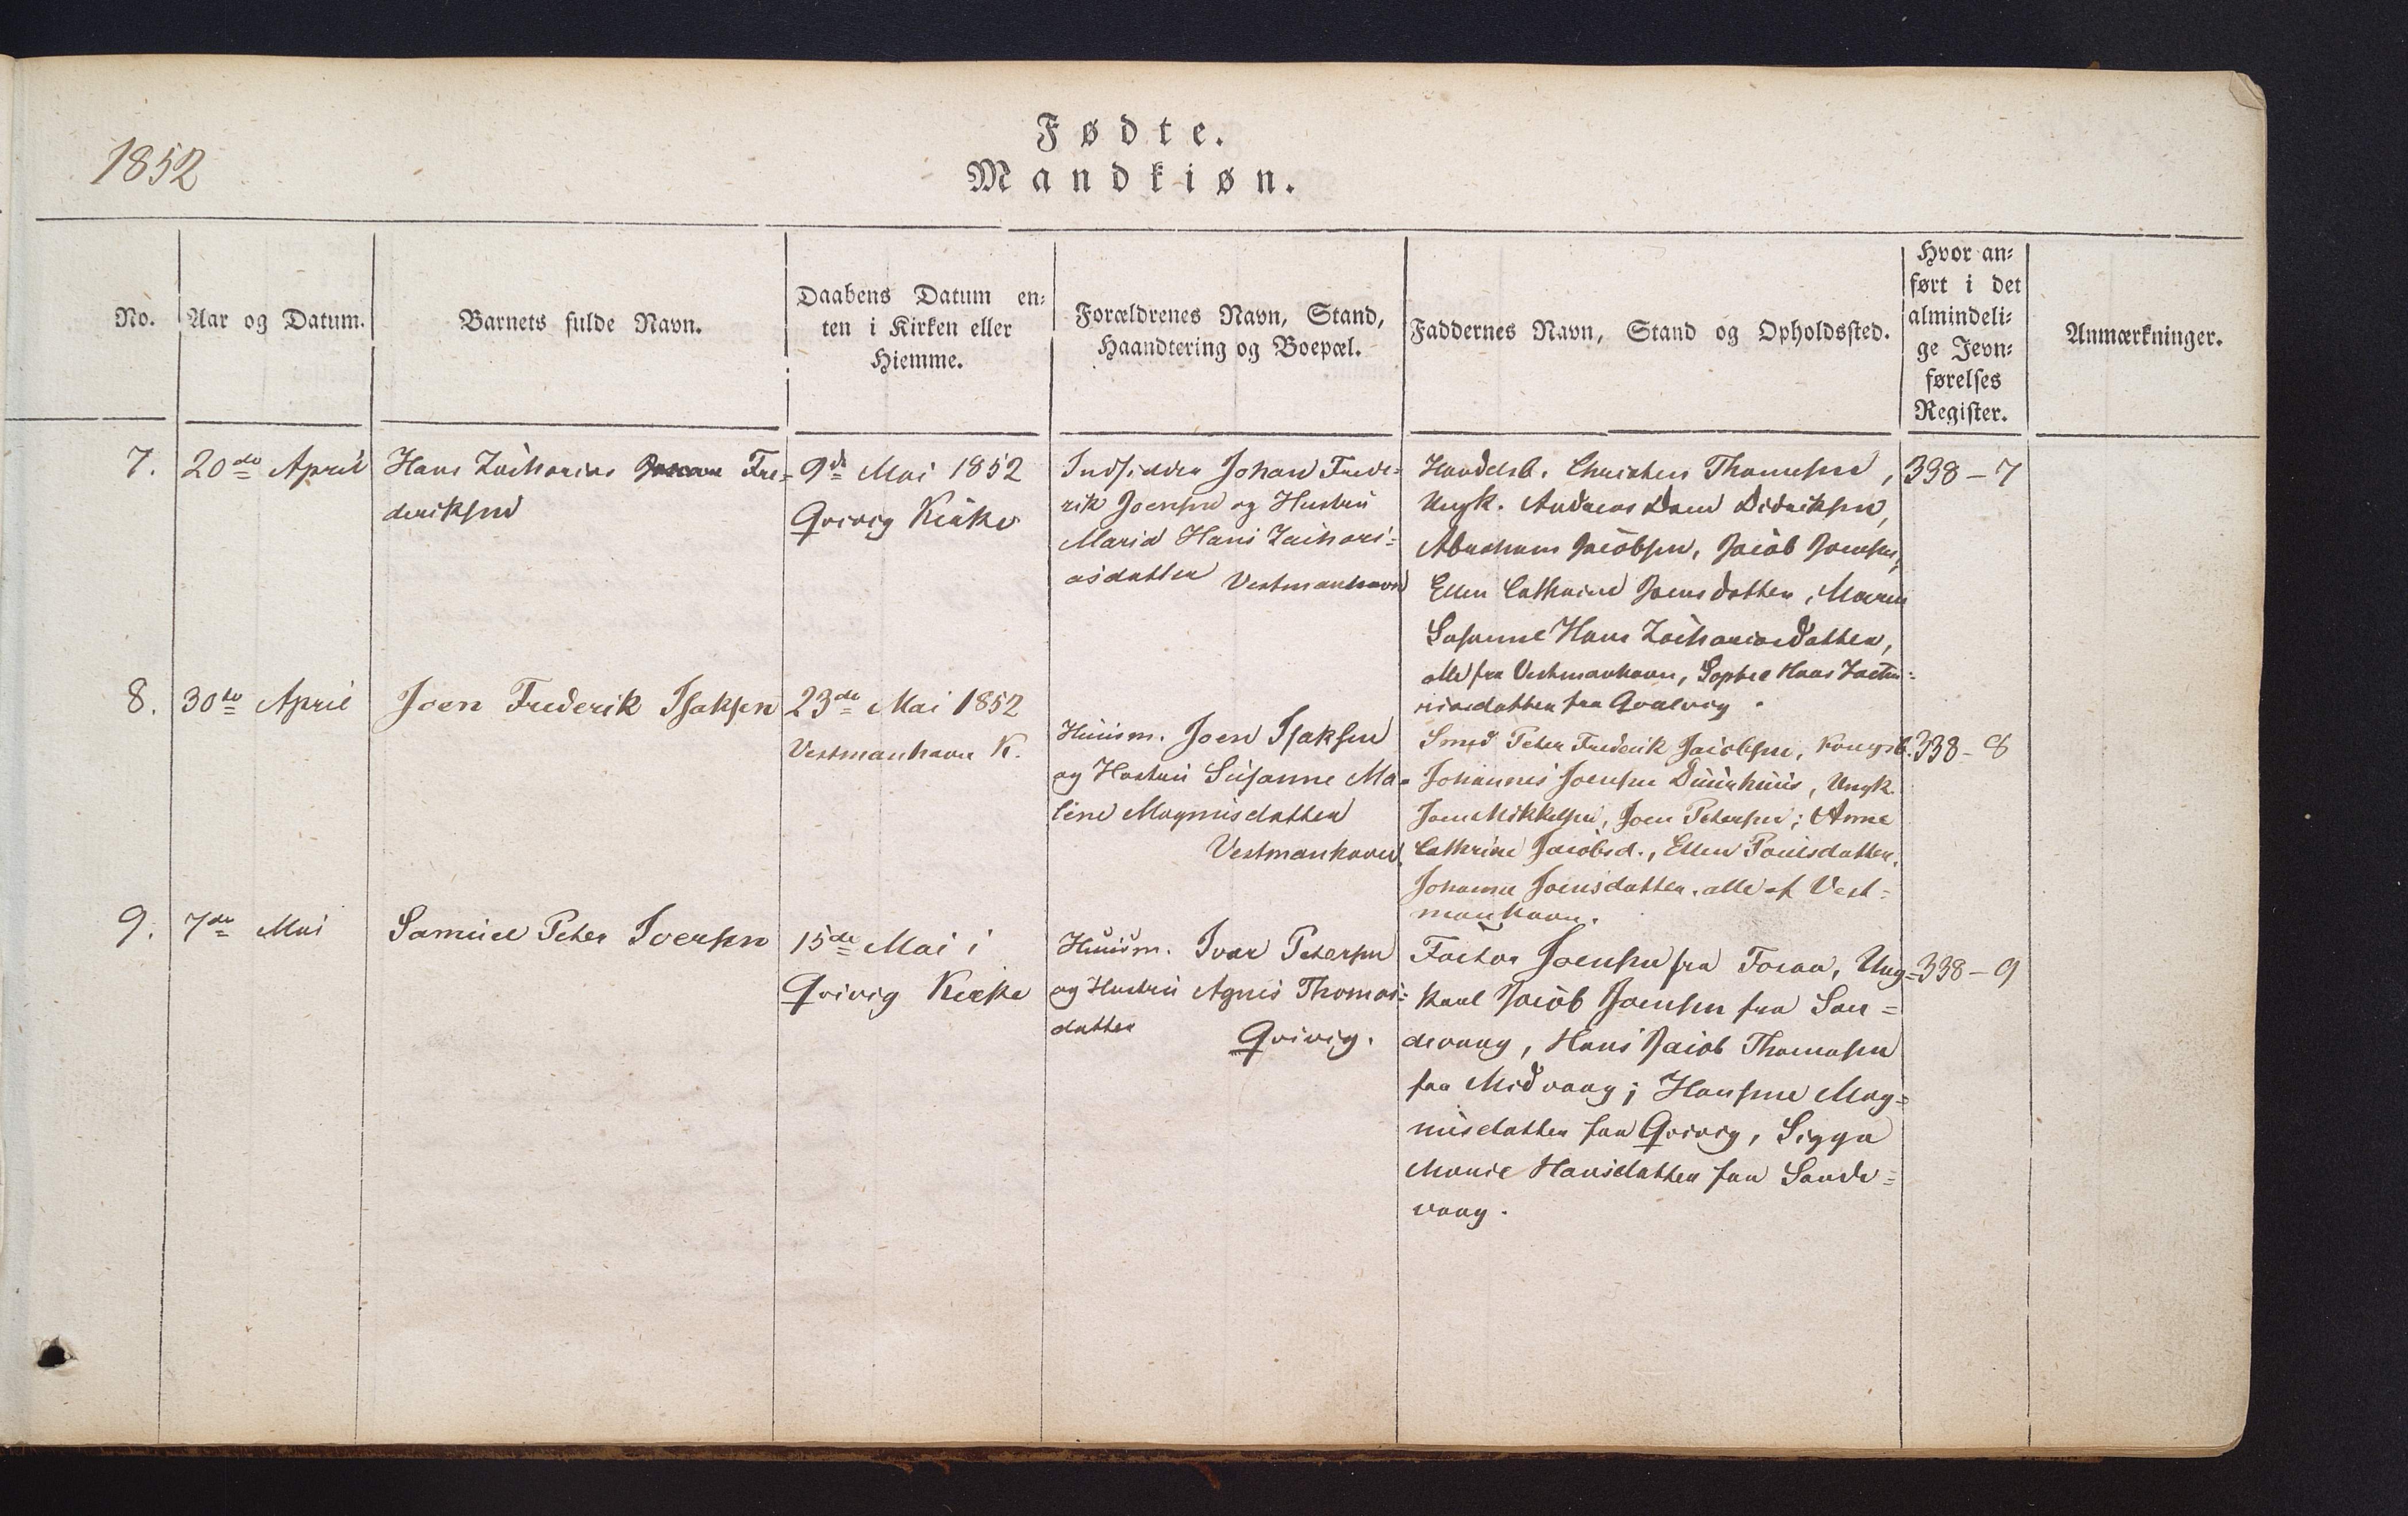 1852
Fødte.
Mandkiøn.
No.
Aar og Datum.
Barnets fulde Navn.
Daabens Datum en=
ten i Kirken eller
Hiemme.
Forældrenes Navn, Stand,
Haandtering og Boepæl.
Faddernes Navn, Stand og Opholdssted.
Hvor an=
ført i det
almindeli=
ge Jevn=
førelses
Register.
Anmærkninger.
7.
20de April
Hans Zacharias Fre=
deriksen
9de Mai 1852
Qvivig Kirke
Indsidder Johan Frede=
rik Joensen og Hustru
Maria Hans Zachari=
asdatter Vestmanhavn
Handelsb. Christen Thomesen,
Ungk. Andreas Didriksen,
Abraham Jacobsen, Jacob Joensen,
Ellen Cathrine Joensdatter, Maren
Susanne Hans Zachariasdatter,
alle fra Vestmanhavn, Sophie Hans Zacha=
riasdatter fra Qvalvig.
338-7
8.
30te April
Joen Frederik Isaksen
23de Mai 1852
Vestmanhavn K.
Huusm. Joen Isaksen
og Hustru Susanne Ma=
lene Magnusdatter
Vestmanhavn
Smed Peter Frederik Jacobsen, Kongsb.
Johannes Joensen Duurhuus, Ungk.
Joen Mikkelsen, Joen Petersen; Anne
Cathrine Jacobsd., Ellen Poulsdatter,
Johanne Joensdatter, alle af Vest=
manhavn.
338-8
9.
7de Mai
Samuel Peter Iversen
15de Mai i
Qvivig Kirke
Huusm. Ivar Petersen
og Hustru Agnes Thomas=
datter
Qvivig.
Factor Joensen fra Ung=
karl Jacob Joensen fra San=
devaag, Hans Jacob Thomasen
fra Midvaag; Hansine Mag=
nusdatter fra Qvivig, Sigga
Marie Hansdatter fra Sande=
vaag.
338-9